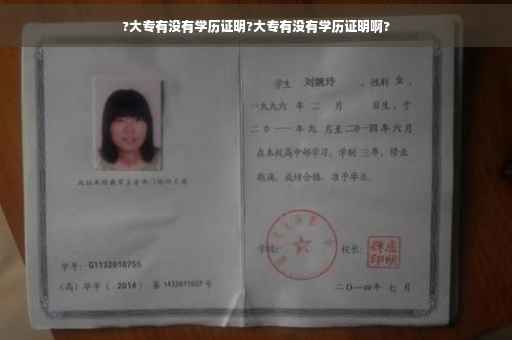 ?大专有没有学历证明?大专有没有学历证明啊?
学生 刘婉玲 ，性别 女 ，
一九九六 年 二 月 日生，于
二〇一一 年 九 月至 二〇一四 年 六 月
在本校高中部学习，学制 三 年，修业
期满，成绩合格，准予毕业。
学号：G1132010755
（高）毕字（ 2014 ）第 1432011027 号
学校：
校长：
二〇一四年 七 月